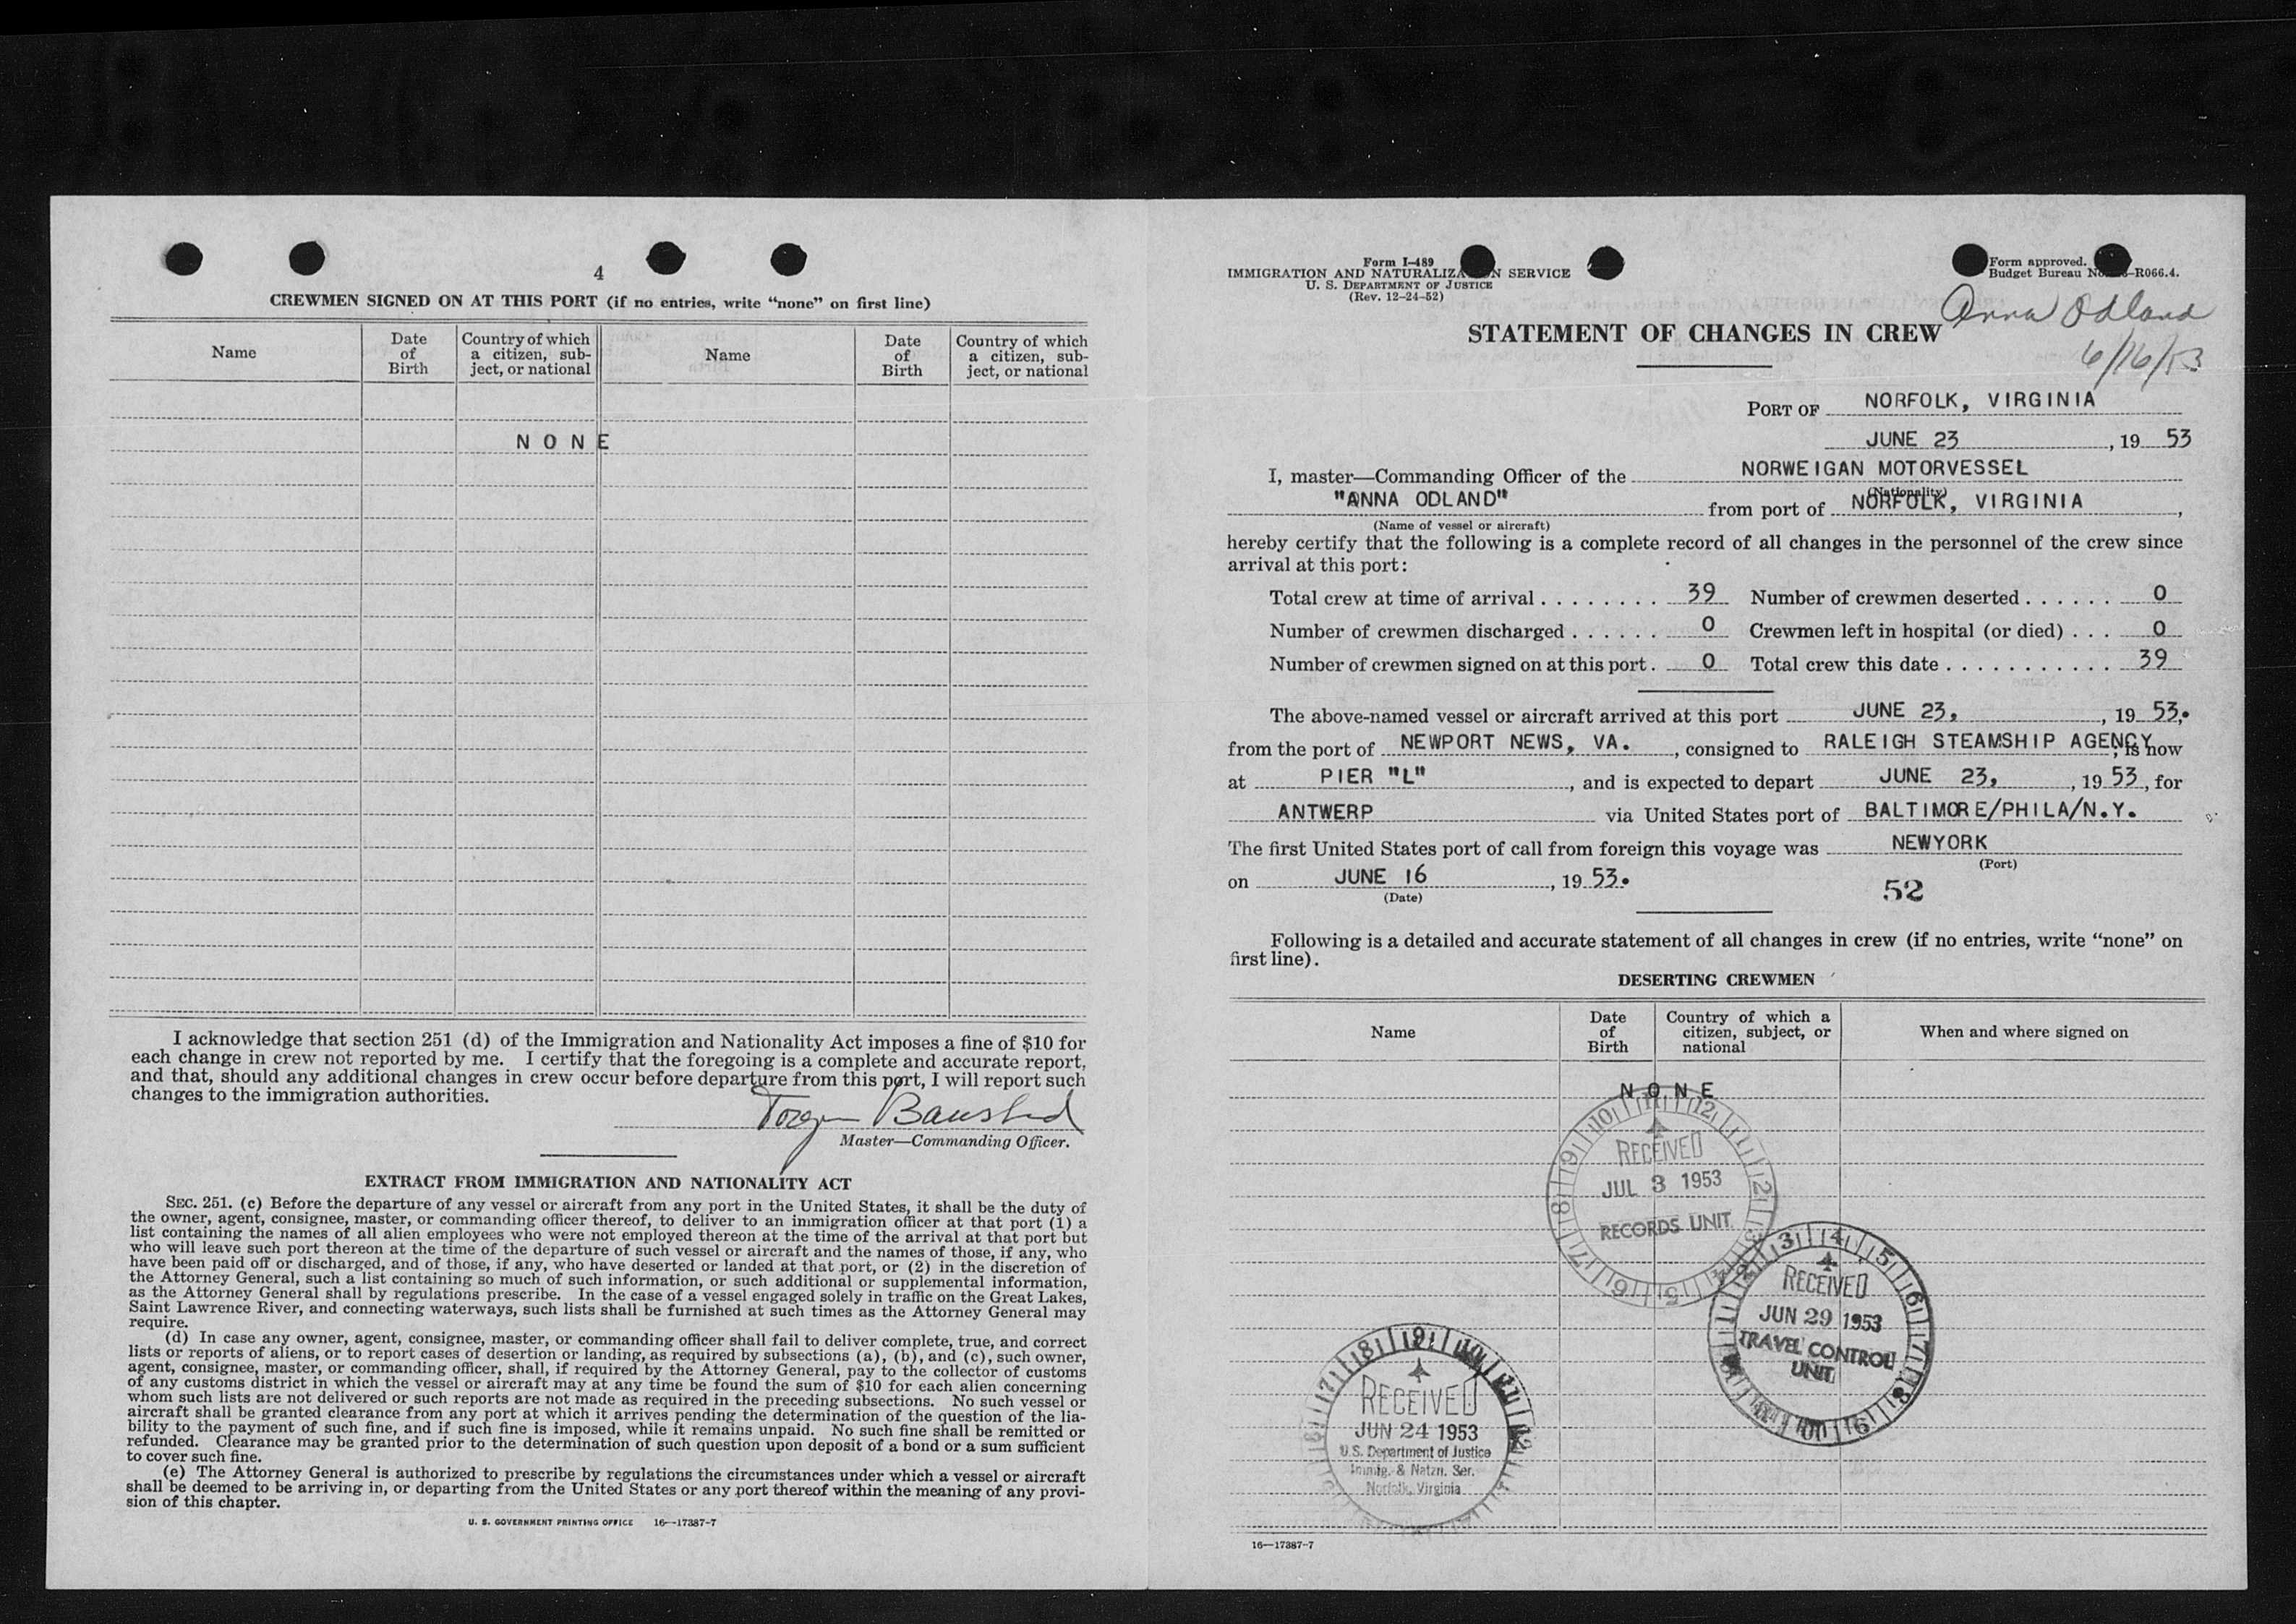 4
CREWMEN SIGNED ON AT THIS PORT (if no entries, write “none” on first line)
Name
Date of Birth
Country of which a citizen, subject, or national
Name
Date of Birth
Country of which a citizen, subject, or national
N O N E
I acknowledge that section 251 (d) of the Immigration and Nationality Act imposes a fine of $10 for
each change in crew not reported by me. I certify that the foregoing is a complete and accurate report,
and that, should any additional changes in crew occur before departure from this port, I will report such
changes to the immigration authorities.
Master—Commanding Officer.
EXTRACT FROM IMMIGRATION AND NATIONALITY ACT
SEC. 251. (c) Before the departure of any vessel or aircraft from any port in the United States, it shall be the duty of
the owner, agent, consignee, master, or commanding officer thereof, to deliver to an immigration officer at that port (1) a
list containing the names of all alien employees who were not employed thereon at the time of the arrival at that port but
who will leave such port thereon at the time of the departure of such vessel or aircraft and the names of those, if any, who
have been paid off or discharged, and of those, if any, who have deserted or landed at that port, or (2) in the discretion of
the Attorney General, such a list containing so much of such information, or such additional or supplemental information,
as the Attorney General shall by regulations prescribe. In the case of a vessel engaged solely in traffic on the Great Lakes,
Saint Lawrence River, and connecting waterways, such lists shall be furnished at such times as the Attorney General may
require.
(d) In case any owner, agent, consignee, master, or commanding officer shall fail to deliver complete, true, and correct
lists or reports of aliens, or to report cases of desertion or landing, as required by subsections (a), (b), and (c), such owner,
agent, consignee, master, or commanding officer, shall, if required by the Attorney General, pay to the collector of customs
of any customs district in which the vessel or aircraft may at any time be found the sum of $10 for each alien concerning
whom such lists are not delivered or such reports are not made as required in the preceding subsections. No such vessel or
aircraft shall be granted clearance from any port at which it arrives pending the determination of the question of the lia-
bility to the payment of such fine, and if such fine is imposed, while it remains unpaid. No such fine shall be remitted or
refunded. Clearance may be granted prior to the determination of such question upon deposit of a bond or a sum sufficient
to cover such fine.
(e) The Attorney General is authorized to prescribe by regulations the circumstances under which a vessel or aircraft
shall be deemed to be arriving in, or departing from the United States or any port thereof within the meaning of any provi-
sion of this chapter.
U. S. GOVERNMENT PRINTING OFFICE 16—17387-7
Form I-489
IMMIGRATION AND NATURALIZATION SERVICE
U. S. DEPARTMENT OF JUSTICE
(Rev. 12-24-52)
Form approved.
Budget Bureau No. -R066.4.
Anna Odland
6/16/53
STATEMENT OF CHANGES IN CREW
PORT OF NORFOLK, VIRGINIA
JUNE 23, 19 53
I, master—Commanding Officer of the NORWEIGAN MOTORVESSEL
(Nationality)
"ANNA ODLAND" from port of NORFOLK, VIRGINIA,
(Name of vessel or aircraft)
hereby certify that the following is a complete record of all changes in the personnel of the crew since
arrival at this port:
Total crew at time of arrival 39 Number of crewmen deserted 0
Number of crewmen discharged 0 Crewmen left in hospital (or died) 0
Number of crewmen signed on at this port 0 Total crew this date 39
The above-named vessel or aircraft arrived at this port JUNE 23, , 19 53.
from the port of NEWPORT NEWS, VA. , consigned to RALEIGH STEAMSHIP AGENCY, is now
at PIER "L" , and is expected to depart JUNE 23, , 19 53, for
ANTWERP via United States port of BALTIMORE/PHILA/N.Y.
The first United States port of call from foreign this voyage was NEWYORK
(Port)
on JUNE 16 , 19 53.
(Date)
52
Following is a detailed and accurate statement of all changes in crew (if no entries, write “none” on
first line).
DESERTING CREWMEN
Name
Date of Birth
Country of which a citizen, subject, or national
When and where signed on
N O N E
RECEIVED
JUL 3 1953
RECORDS UNIT
RECEIVED
JUN 29 1953
TRAVEL CONTROL
UNIT
RECEIVED
JUN 24 1953
U.S. Department of Justice
Immig. & Natzn. Ser.
Norfolk, Virginia
16—17387-7